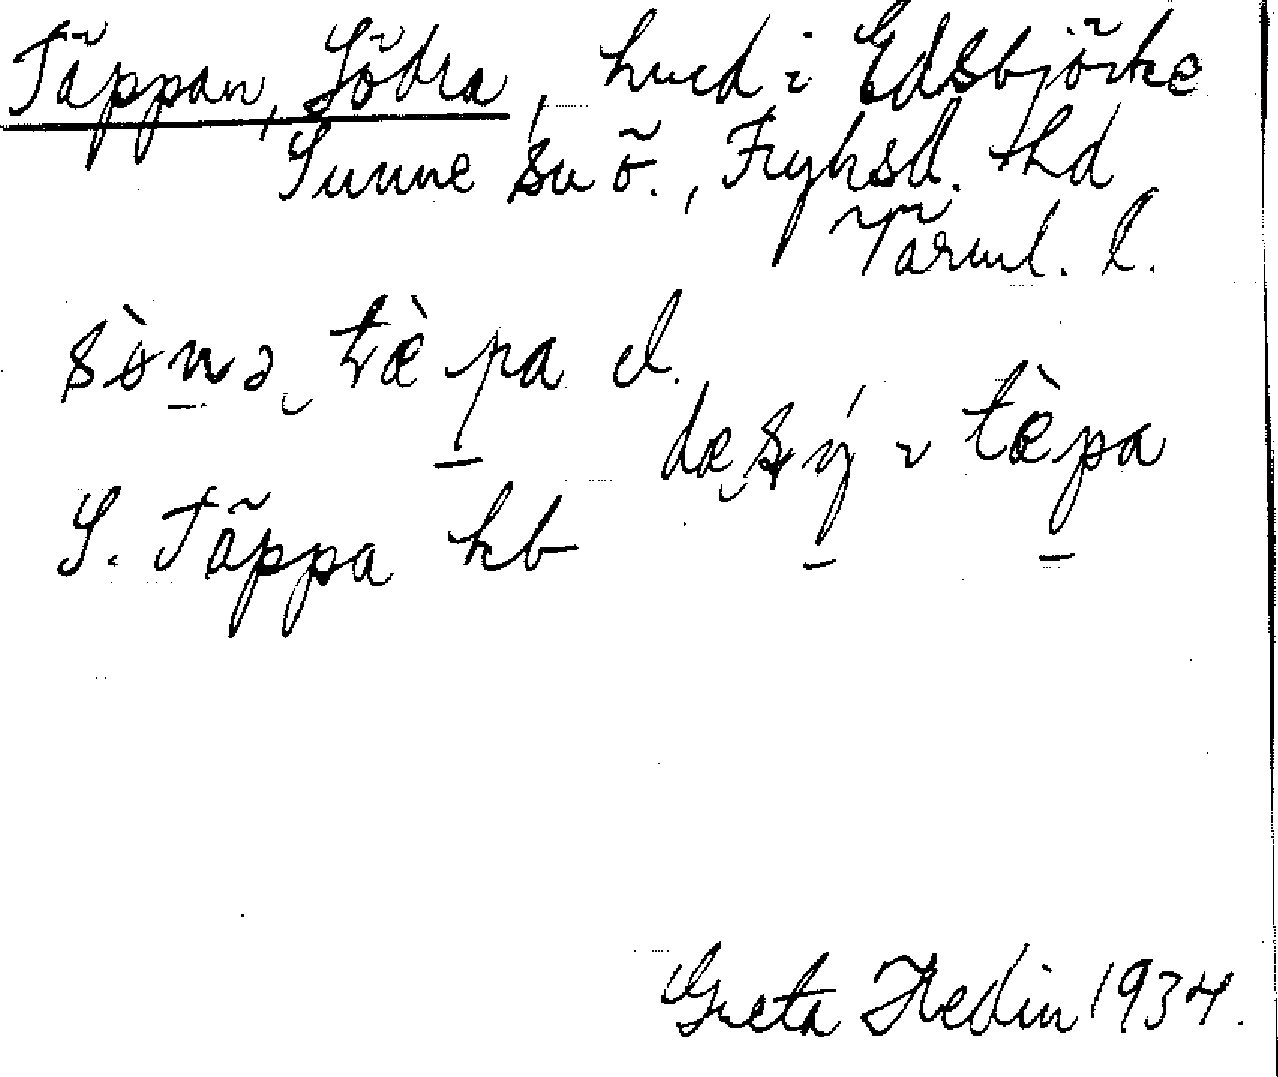 Täppan, Södra, hmd i Edsbjörke
Sunne sn ö., Fryksd. thd
Värml. l.
sø̀nə tæ̀pa d.
dæ sý i tæ̀pa
S. Täppa kb
Greta Hedin 1934.